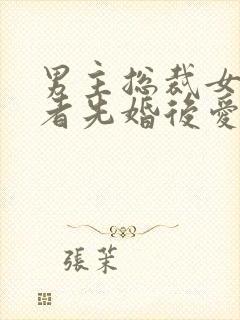 男主总裁女
者先婚後愛
張茉